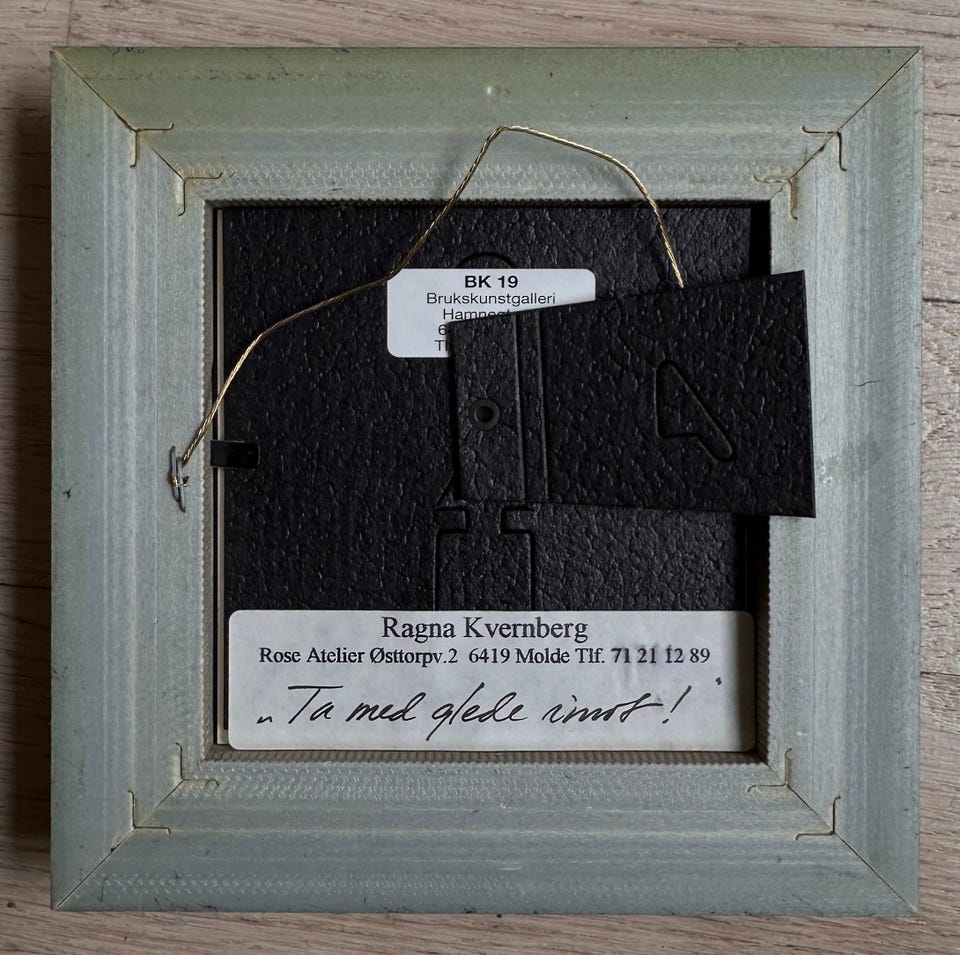 BK 19
Brukskunstgalleri
Ragna Kvernberg
Rose Atelier Østtorpv.2 6419 Molde Tlf. 71 21 12 89
„Ta med glede imot!"